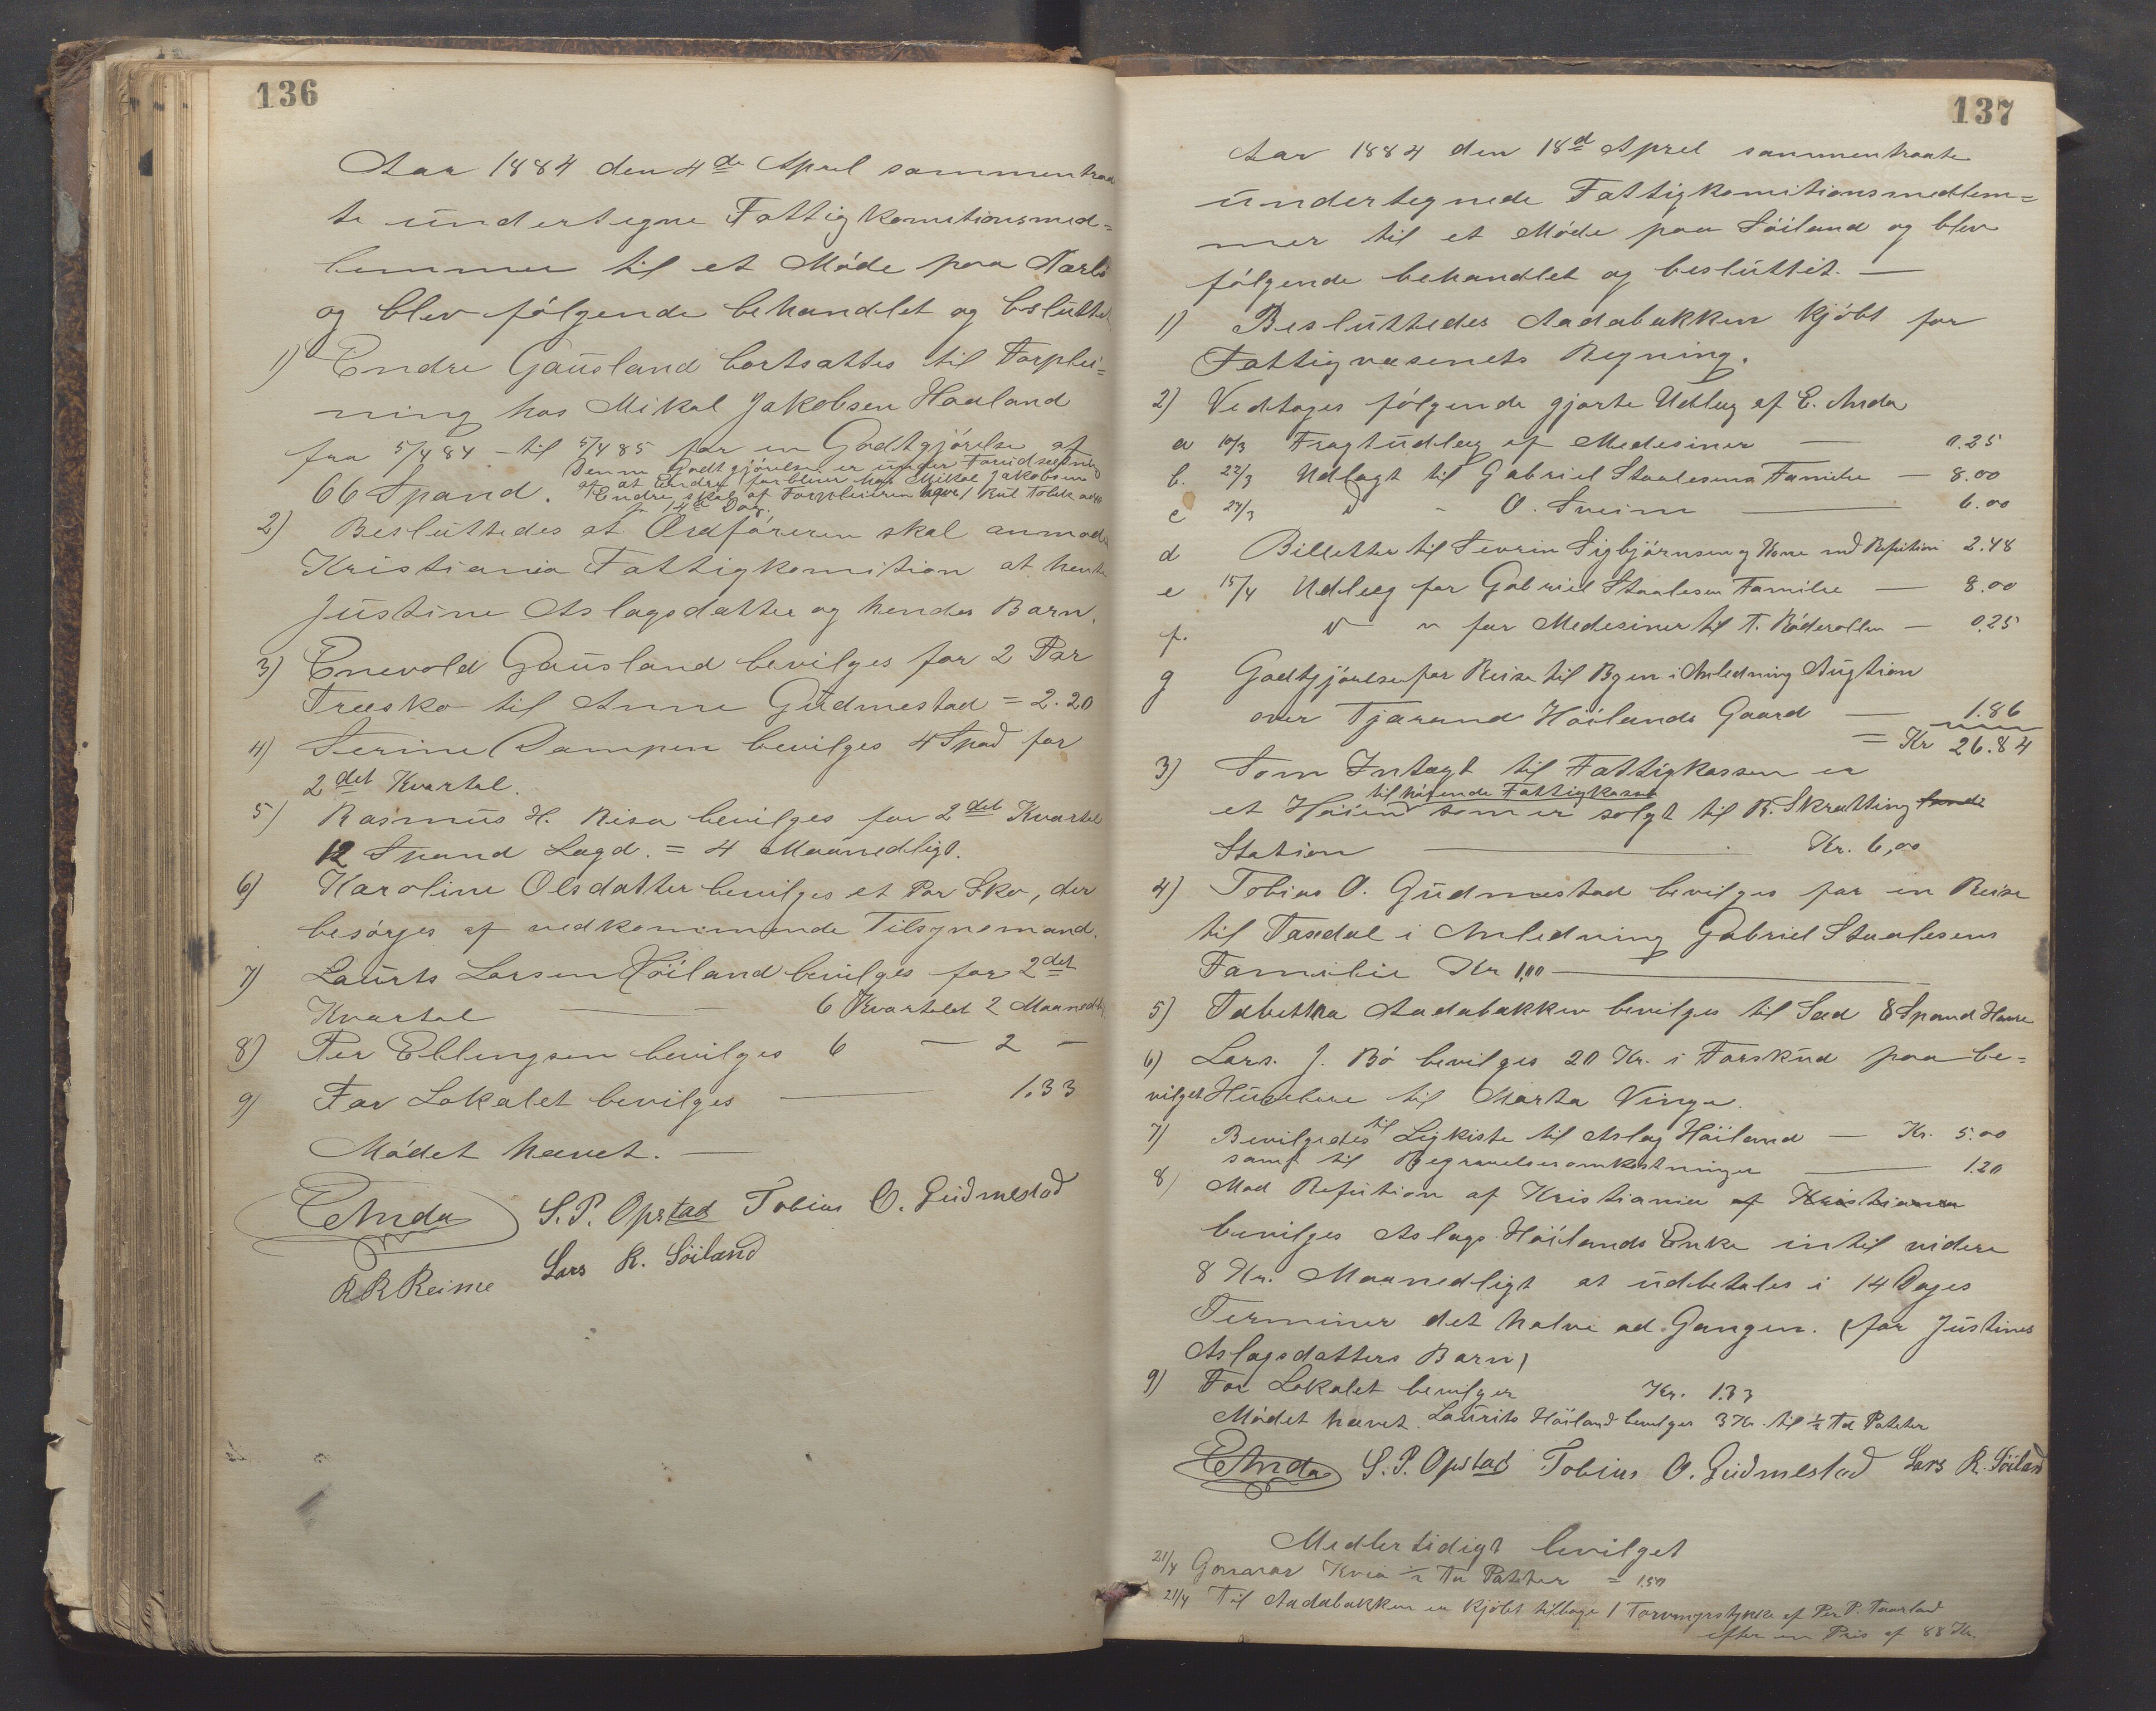 136
Aar 1884 den 4de April sammentraad
te undertegne Fattigkomitionsmed=
lemmer til et Møde paa Nærbø
og blev følgende behandlet og besluttet
1) Endre Gausland bortsattes til Forplei=
ning hos Mikal Jakobsen Haaland
fra 5/4 84 - til 5/4 85 for en Godtgjørelse af
Denne Godtgjørelse er under Forudsetning
af at Endre forbliver hos Mikal Jakobsen
66 Spand. Endre skal af Forpleieren have 1 Rul Tobak
pr 14de Dag.
2) Besluttedes at Ordføreren skal anmode
Kristiania Fattigkomition at hente
Justine Aslagsdatter og hendes Barn.
3) Enevold Gausland bevilges for 2 Par
Træsko til Anne Gudmestad = 2.20
4) Serine Dampen bevilges 4 Spad for
2det Kvartal.
5) Rasmus H. Risa bevilges for 2det Kvartal
12 Spand Lagd. = 4 Maanedligt.
6) Karoline Olsdatter bevilges et Par Sko, der
besørges af vedkommende Tilsynsmand.
7) Laurts Larsen Høiland bevilges for 2det
Kvartal — 6 Kvartalet 2 Maanedlig
8) Per Ellingsen bevilges 6 — 2 —
9) For Lokalet bevilges — 1.33
Mødet hævet. —
E Anda S. P. Opstad Tobias O. Gudmestad
R R Reime Lars R. Söiland
137
Aar 1884 den 18d April sammentraate
undertegnede Fattigkomitionsmedlem=
mer til et Møde paa Söiland og blev
følgende behandlet og besluttet. —
1) Besluttedes Aadabakken kjøbt for
Fattigvæsenets Regning.
2) Vedtages følgende gjorte Udlæg af E. Anda
a 10/3 Fragtudlæg af Medesiner — 0.25
b. 22/3 Udlagt til Gabriel Staalesens Familie — 8.00
c 27/3 " - O. Sveim — 6.00
d Billetter til Sevrin Sigbjørnsen og Kone med Refution 2.48
e 15/4 Udlæg for Gabriel Staalesen Familie — 8.00
f. " " for Medesiner til T. Røderollen — 0.25
g Godtgjørelse for Reise til Byen i Anledning Augtion
over Tjærand Høilands Gaard — 1.86
= Kr 26.84
3) Som Intægt til Fattigkassen er
tilhørende Fattigkasse
et Høiin som er solgt til R. Skratting
Station — Kr. 6,00
4) Tobias O. Gudmestad bevilges for en Reise
til Taxdal i Anledning Gabriel Staalesens
Familie Kr 1,00 —
5) Tabettha Aadabakken bevilges til Sæd 8 Spand Havre
6) Lars. J. Bø bevilges 20 Kr. i Forskud paa be=
vilget Husleie til Marta Vinge.
7) Bevilgedes til Ligkiste til Aslag Høiland — Kr. 5.00
samt til Begravelsesomkostninger — 1.20
8) Mod Refution af Kristiania af Kristiania
bevilges Aslags Høilands Enke intil videre
8 Kr. Maanedligt at udbetales i 14 Dages
Terminer det halve ad Gangen. (for Justines
Aslagsdatters Barn)
9) For Lokalet bevilges Kr. 1.33
Mødet hævet. Laurits Høiland bevilges 3 Kr. til ½ Td Poteter
E Anda S. P. Opstad Tobias O. Gudmestad Lars R. Söiland
Medlertidigt bevilget
21/4 Gunvor Kvia ½ Tn Poteter = 1.50
21/4 Til Aadabakken er kjöbt tilbage 1 Torvmyrstykke af Per P. Taarland
efter en Pris af 88 Kr.